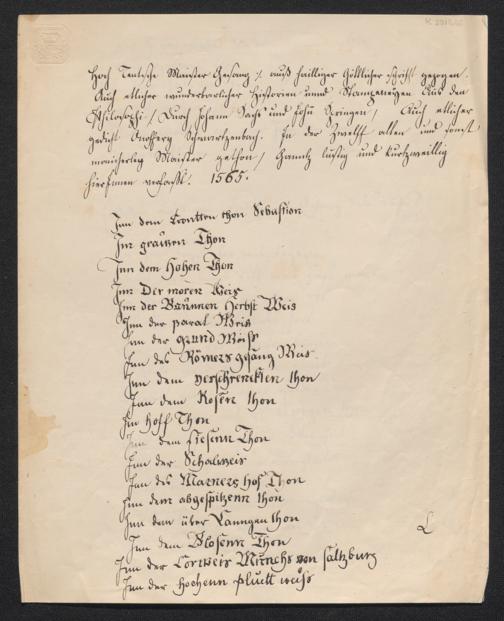 Hoch Teutsche Maister Gesang auß hailliger Göttlicher schrifft gezogen.
Auch etlicher wunderbarlicher Historien unnd Aus den
Philosophi / Durch Johann Sachs und / Auch etlicher
gedicht Schwartzenbach. In der Zwelff alten und sonst
Maister gethon / Gantz lustig und kurtzweillig
hierinnen verfasst. 1565.
Inn dem thon Sebastion
Im grauen Thon
Inn dem Hohen Thon
Inn Der moren Weis
Inn der Brunnen Herbst Weis
Inn der parat Weis
Inn der grund Weiss
Inn des Römers gesang Weis
Inn dem verschrenckten thon
Inn dem Rosen thon
Im Hoff Thon
Inn dem Thon
Inn der Schalweis
Inn des Marners Hof Thon
Inn dem abgespitzenn thon
Inn dem über Lanngen thon
Inn dem Blosenn Thon
Inn der Corweis Munchs von Saltzburg
Inn der Hochenn pluett weiß